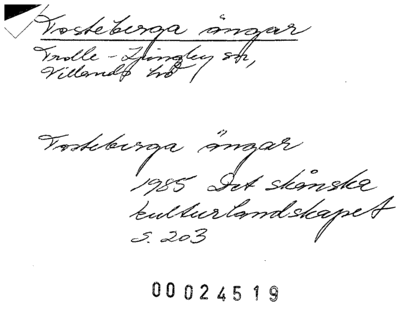 Tosteberga ängar
Trolle-Ljungby sn,
Villands hd
Tosteberga ängar
1985 Det skånska
kulturlandskapet
S. 203
00024519